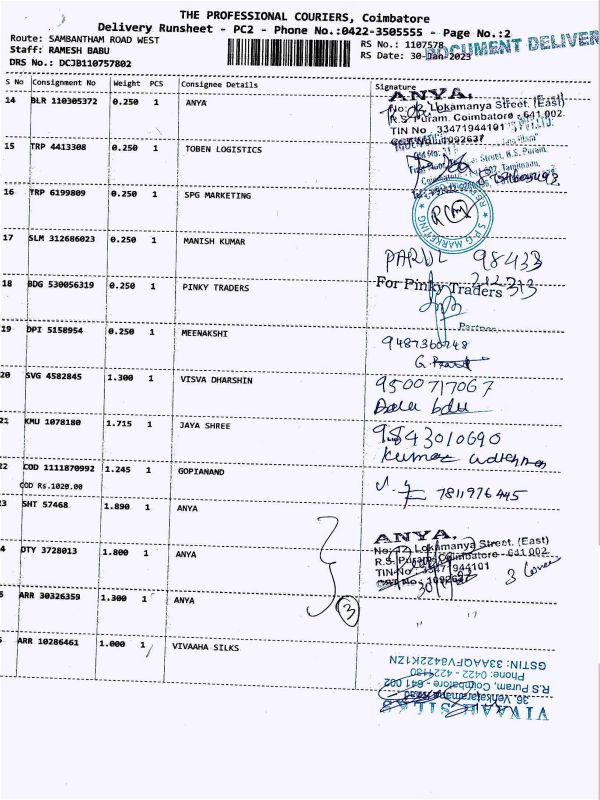 THE PROFESSIONAL COURIERS, Coimbatore
Delivery Runsheet - PC2 - Phone No.:0422-3505555 - Page No.:2
Route: SAMBANTHAM ROAD WEST
Staff: RAMESH BABU
DRS No.: DCJB110757802
RS No.: 1107578
RS Date: 30-Jan-2023
DOCUMENT DELIVER
S No Consignment No Weight PCS Consignee Details Signature
14 BLR 110305372 0.250 1 ANYA
ANYA.
No: 12, Lokamanya Street. (East)
R.S. Puram. Coimbatore - 641 002.
TIN No : 33471944101
15 TRP 4413308 0.250 1 TOBEN LOGISTICS
16 TRP 6199809 0.250 1 SPG MARKETING
SPG MARKETING
17 SLM 312686023 0.250 1 MANISH KUMAR
PARUL 98433
212313
18 BDG 530056319 0.250 1 PINKY TRADERS
For Pinky Traders
Partner
19 DPI 5158954 0.250 1 MEENAKSHI
9487360748
20 SVG 4582845 1.300 1 VISVA DHARSHIN
9500717067
21 KMU 1078180 1.715 1 JAYA SHREE
9843010690
Kumar
22 COD 1111870992 1.245 1 GOPIANAND
COD Rs.1020.00
7811976445
3 SHT 57468 1.890 1 ANYA
4 DTY 3728013 1.800 1 ANYA
ANYA.
No: 12, Lokamanya Street. (East)
R.S. Puram, Coimbatore - 641 002.
TIN No : 33471944101
CST No : 1092637
3 Cover
5 ARR 30326359 1.300 1 ANYA
3
ARR 10286461 1.000 1 VIVAAHA SILKS
VIVAAH SILKS
R.S Puram, Coimbatore - 641 002
Phone: 0422 - 4221130
GSTIN: 33AAQFV8422K1ZN